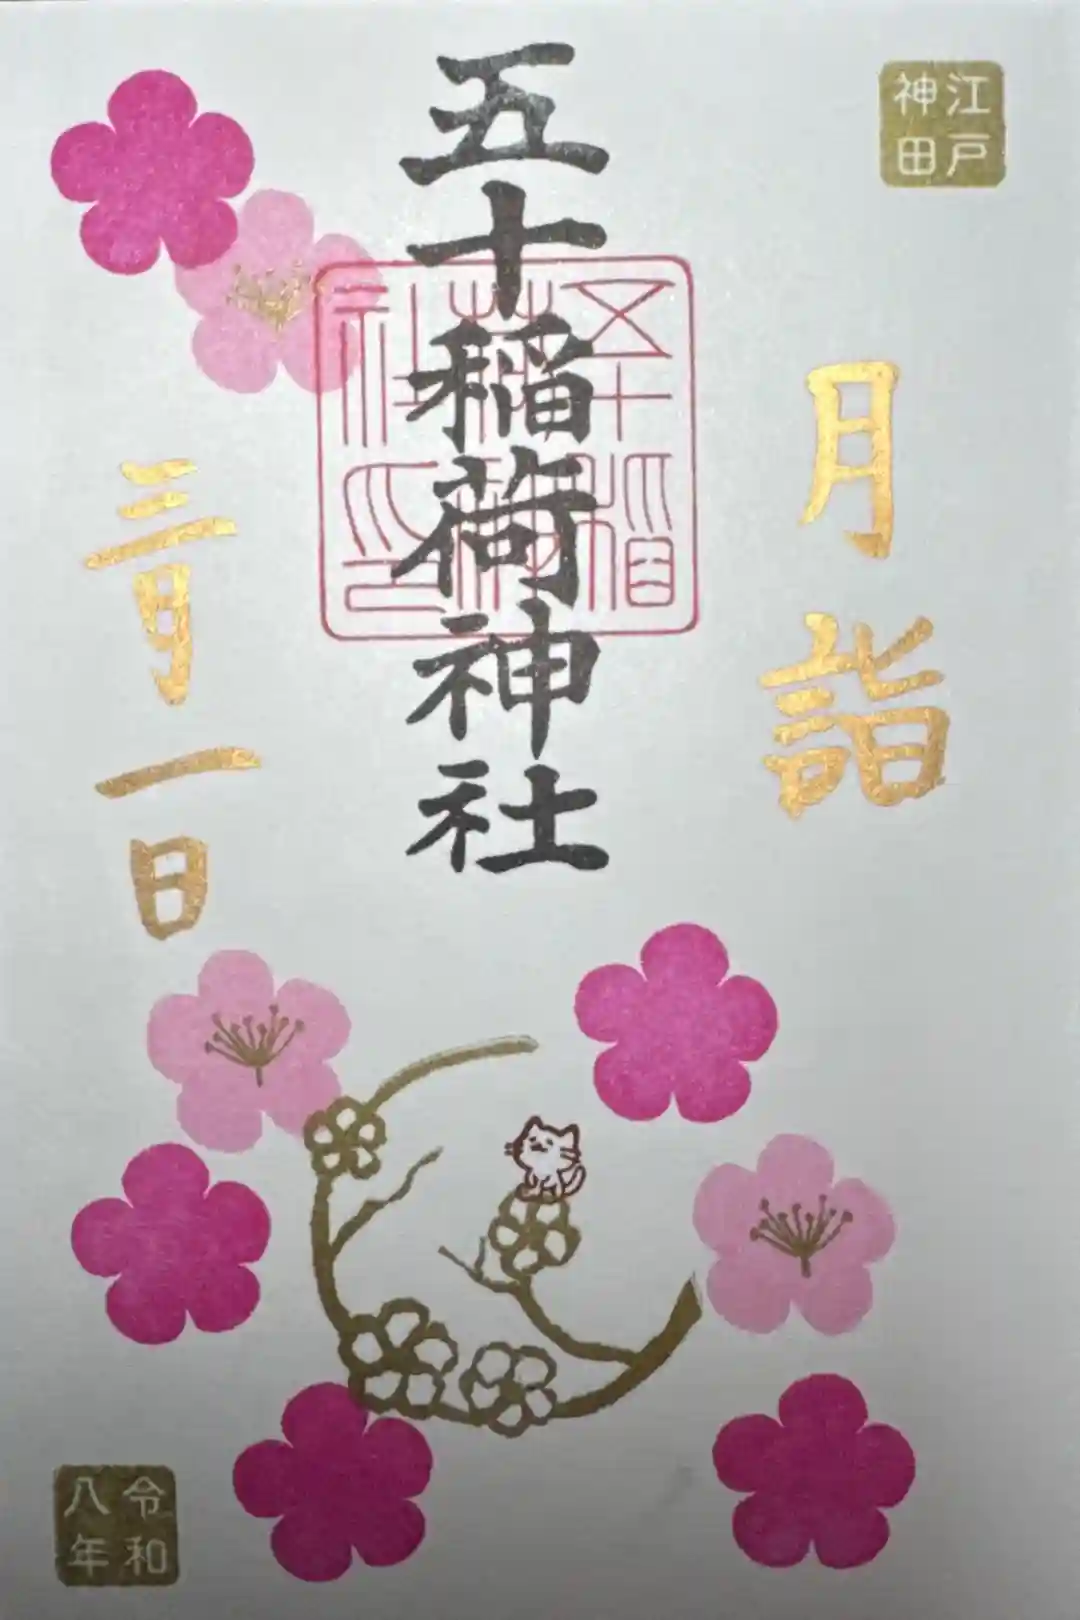 江戸
神田
月詣
五十稲荷神社
五十稲
荷神
社印
三月一日
令和
八年